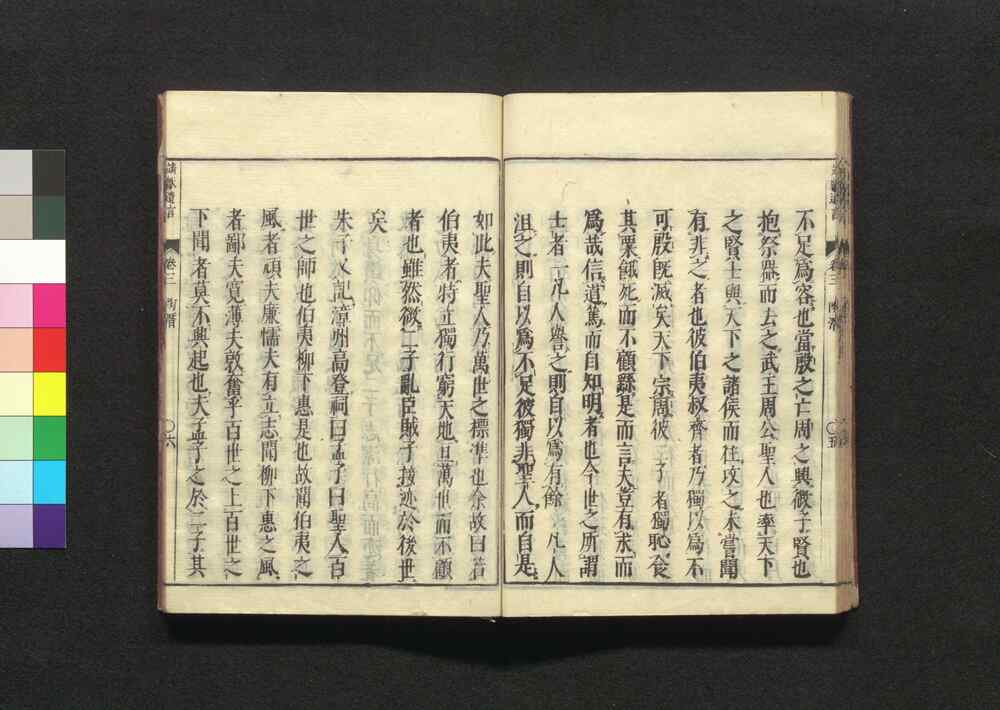 不足爲容也當殷之亡周之興微子賢也
抱祭器而去之武王周公聖人也率天下
之賢士與天下之諸侯而往攻之未嘗聞
有非之者也彼伯夷叔齊者乃獨以爲不
可殷既滅矣天下宗周彼二子者獨恥食
其粟餓死而不顧繇是而言夫豈有求而
爲哉信道篤而自知明者也今世之所謂
士者一凡人譽之則自以爲有餘一凡人
沮之則自以爲不足彼獨非聖人而自是
如此夫聖人乃萬世之標準也余故曰若
伯夷者特立獨行窮天地亘萬世而不顧
者也雖然微二子亂臣賊子接迹於後世
矣
朱子又記漳州高登祠曰孟子曰聖人百
世之師也伯夷柳下惠是也故聞伯夷之
風者頑夫廉懦夫有立志聞柳下惠之風
者鄙夫寛薄夫敦奮乎百世之上百世之
下聞者莫不興起也夫孟子之於二子其
靖獻遺言
卷三
陶潛
〇五
靖獻遺言
卷三
陶潛
〇六